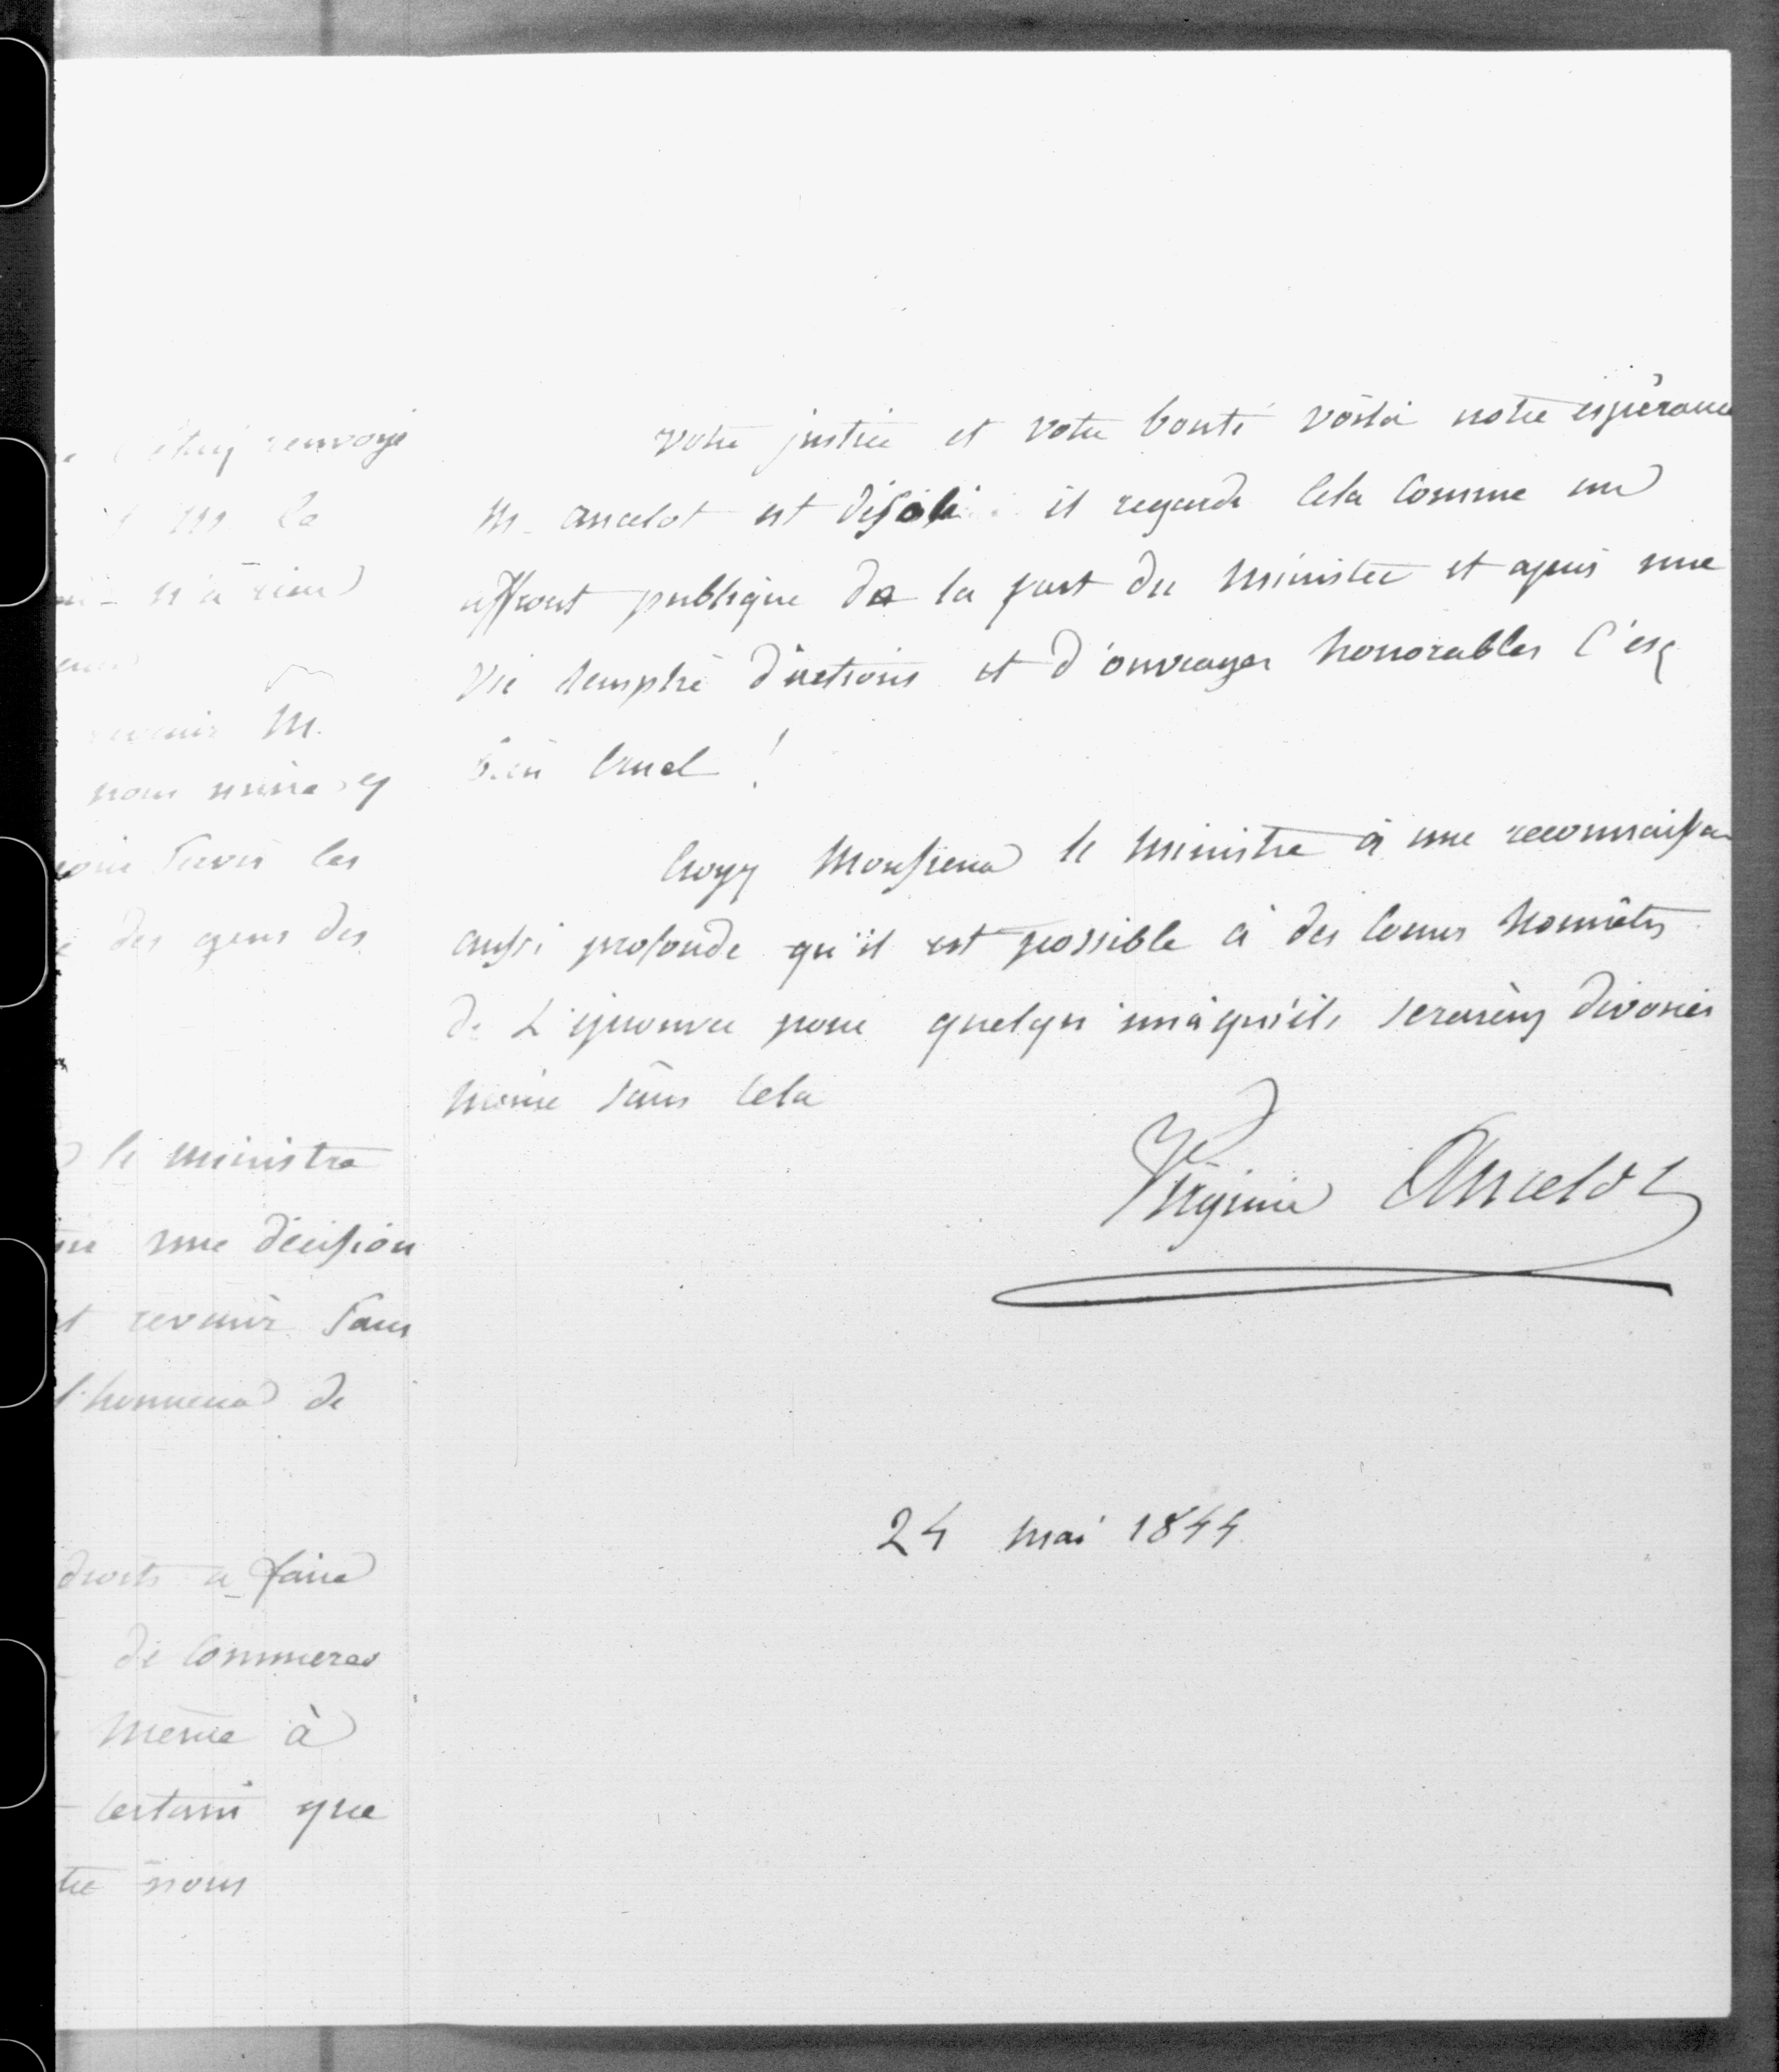 renvoyé
M. le
n'a rien
revenir M.
pour nuire et
pour servir les
des gens des
le ministre
une décision
revenir sans
l'honneur de
droits a faire
de commerce
même à
certain que
nous
votre justice et votre bonté voila notre espérance
M. ancelot est désolé il regarde cela comme un
affront publique de la part du ministre et après une
vie remplie d'actions et d'ouvrages honorables c'est
bien cruel !
Croyez Monsieur le Ministre à une reconnaissan
aussi profonde qu'il est possible à des coeurs honnêtes
de l'éprouver pour quelqu'un à qu'ils seraient dévoués
même sans cela
Virginie Ancelot
24 mai 1844